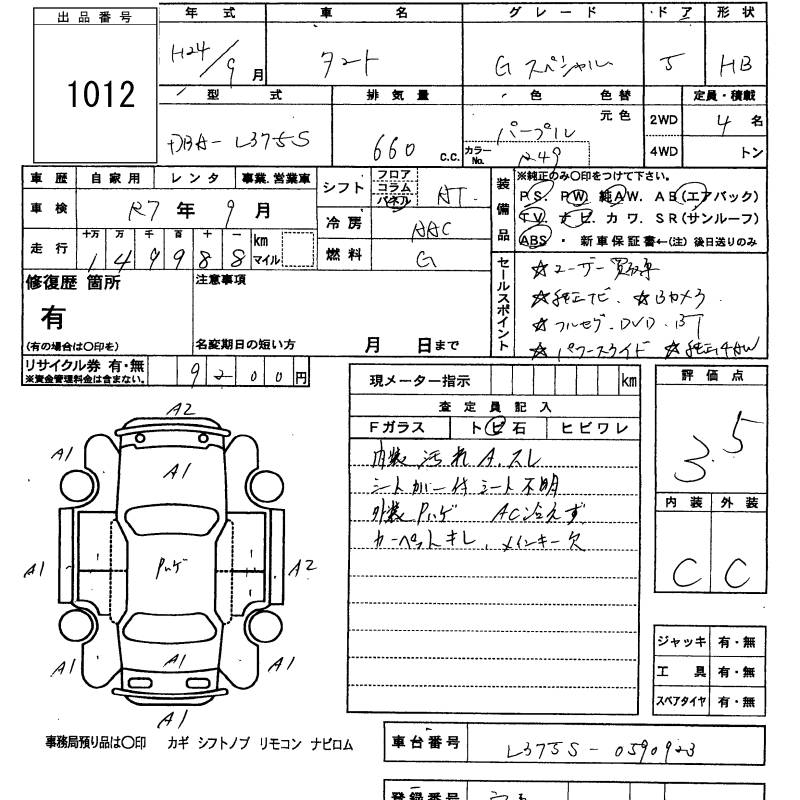 出品番号 年式 車名 グレード ドア 形状
1012 H24/9月 タント Gスペシャル 5 HB
型式 排気量 色 色替 定員・積載
DBA-L375S 660 c.c. パープル 元色 2WD 4名
カラーNo. R49 4WD トン
車歴 自家用 レンタ 事業.営業車 シフト フロア コラム パネル AT 装備品 ※純正のみ〇印をつけて下さい。
車検 R7年9月 冷房 AAC PS. PW. 純AW. AB(エアバック)
TV. ナビ. カワ. SR(サンルーフ)
走行 十万 万 千 百 十 一 km マイル 燃料 G ABS・新車保証書←(注)後日送りのみ
149988
修復歴 箇所 注意事項 セールスポイント ☆ユーザー買取車
有 ☆純正ナビ. ☆Bカメラ
☆フルセグ. DVD. BT
(有の場合は〇印を) 名変期日の短い方 月 日まで ☆パワースライド ☆純正14AW
リサイクル券 有・無 9200円
※資金管理料金は含まない。
現メーター指示 km 評価点
査定員記入 3.5
Fガラス トビ石 ヒビワレ
内装汚れA.スレ
シートカバー付シート不明
外装Pハゲ ACひえず
カーペットキレ. メインキー欠
内装 外装
C C
A2
A1 A1
A1
A1 Pハゲ A2
A1 A1 A1
A1
ジャッキ 有・無
工具 有・無
スペアタイヤ 有・無
事務局預り品は〇印 カギ シフトノブ リモコン ナビロム
車台番号 L375S-0590923
登録番号